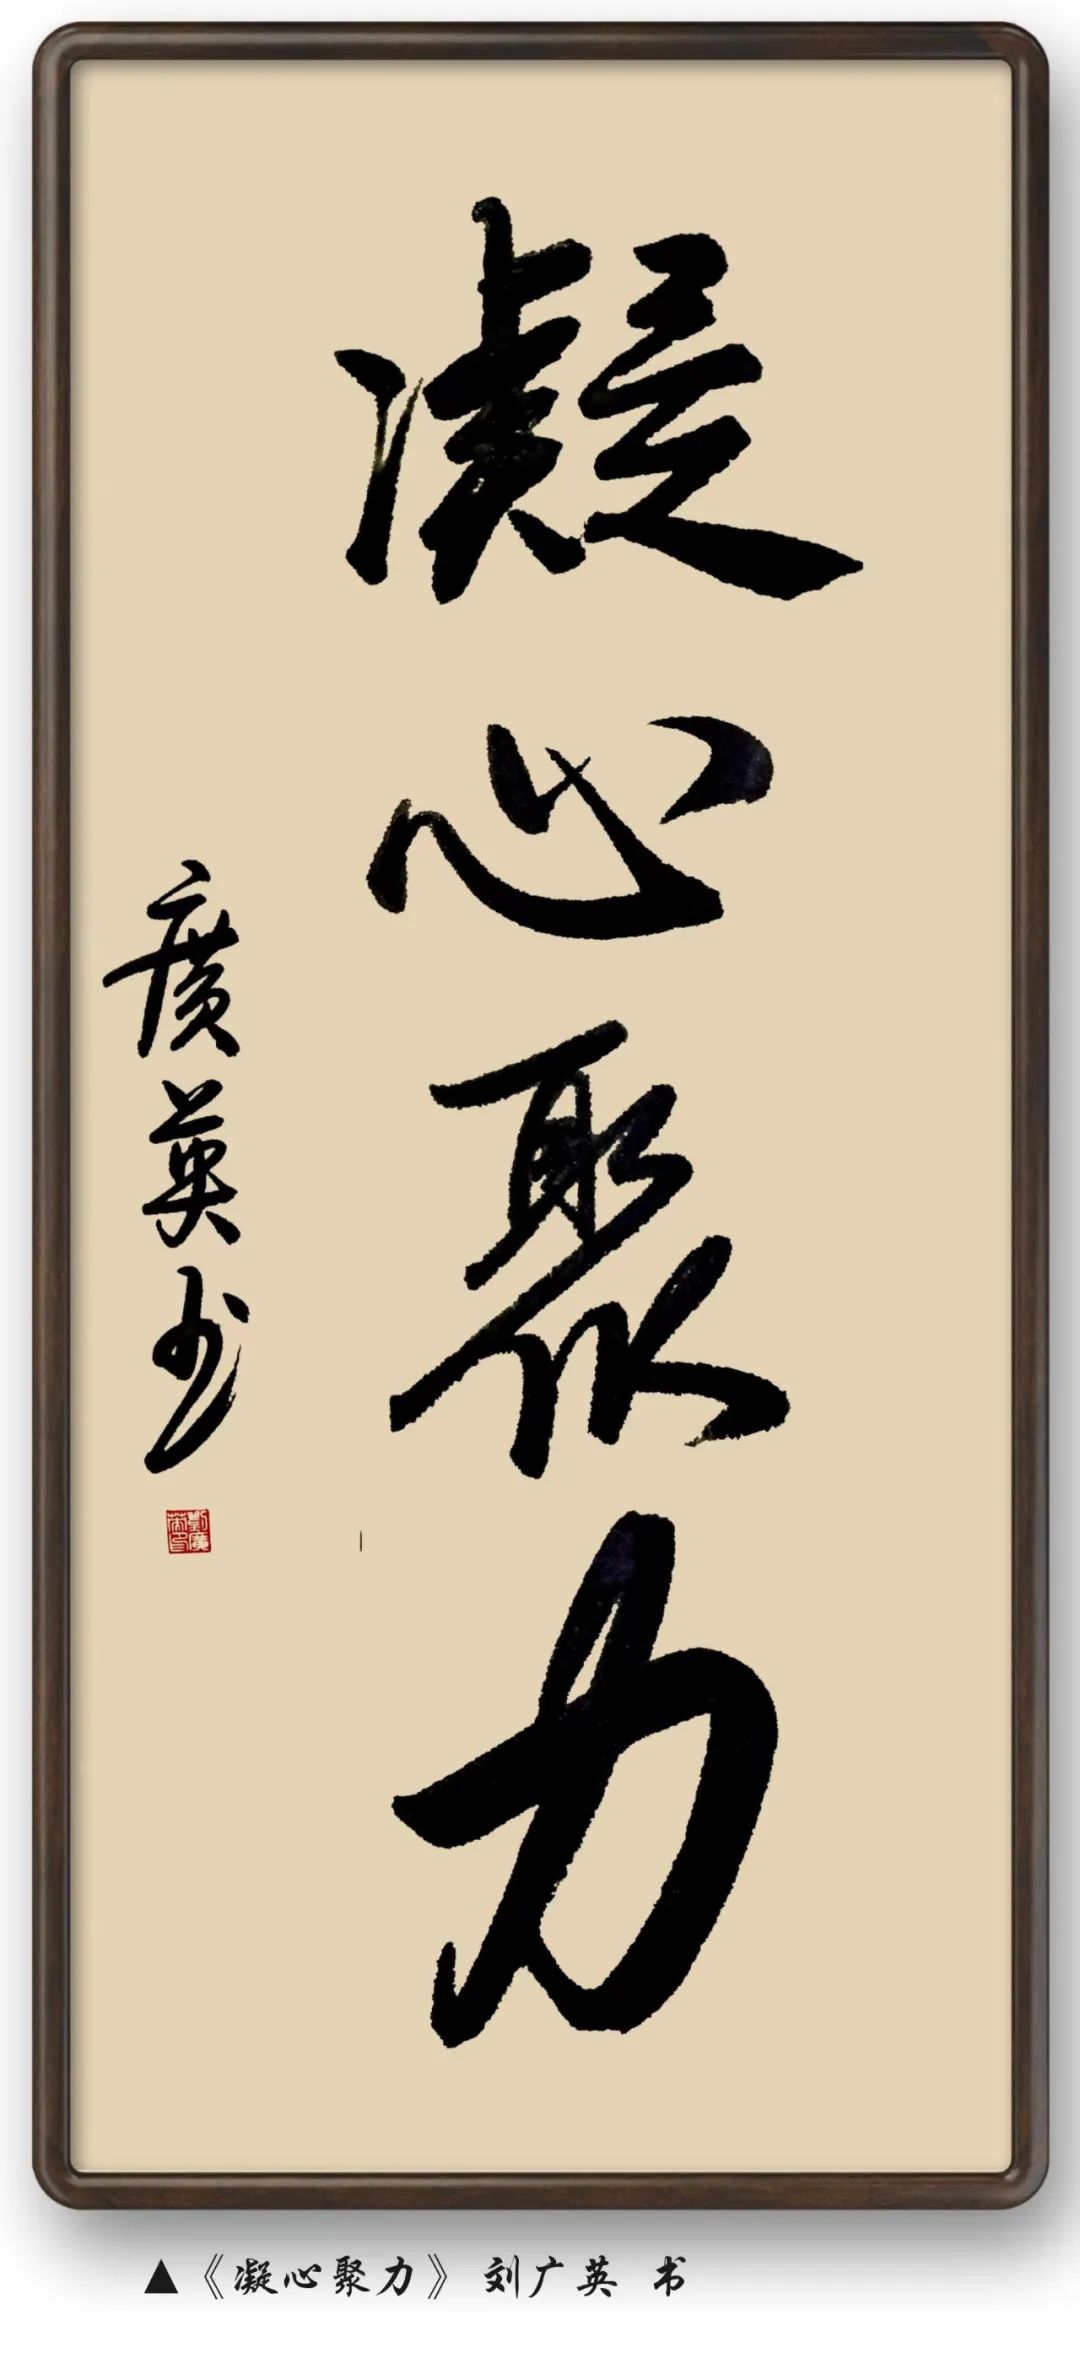 凝心聚力
廣英书
劉廣英印
▲《凝心聚力》 刘广英 书